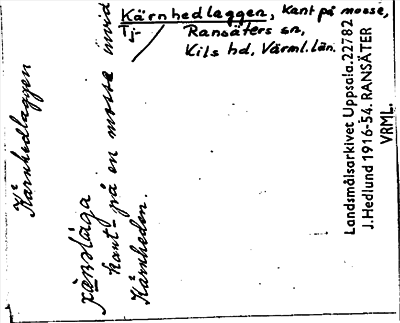 Kärnhedleggen, kant på mosse,
Ransäters sn,
Kils hd, Värml. län.
Tj
Kärnhedlaggen
kant på en mosse invid
Kärnheden.
Landsmålsarkivet Uppsala. 22782
J. Hedlund 1916-54. RANSÄTER
VRML.